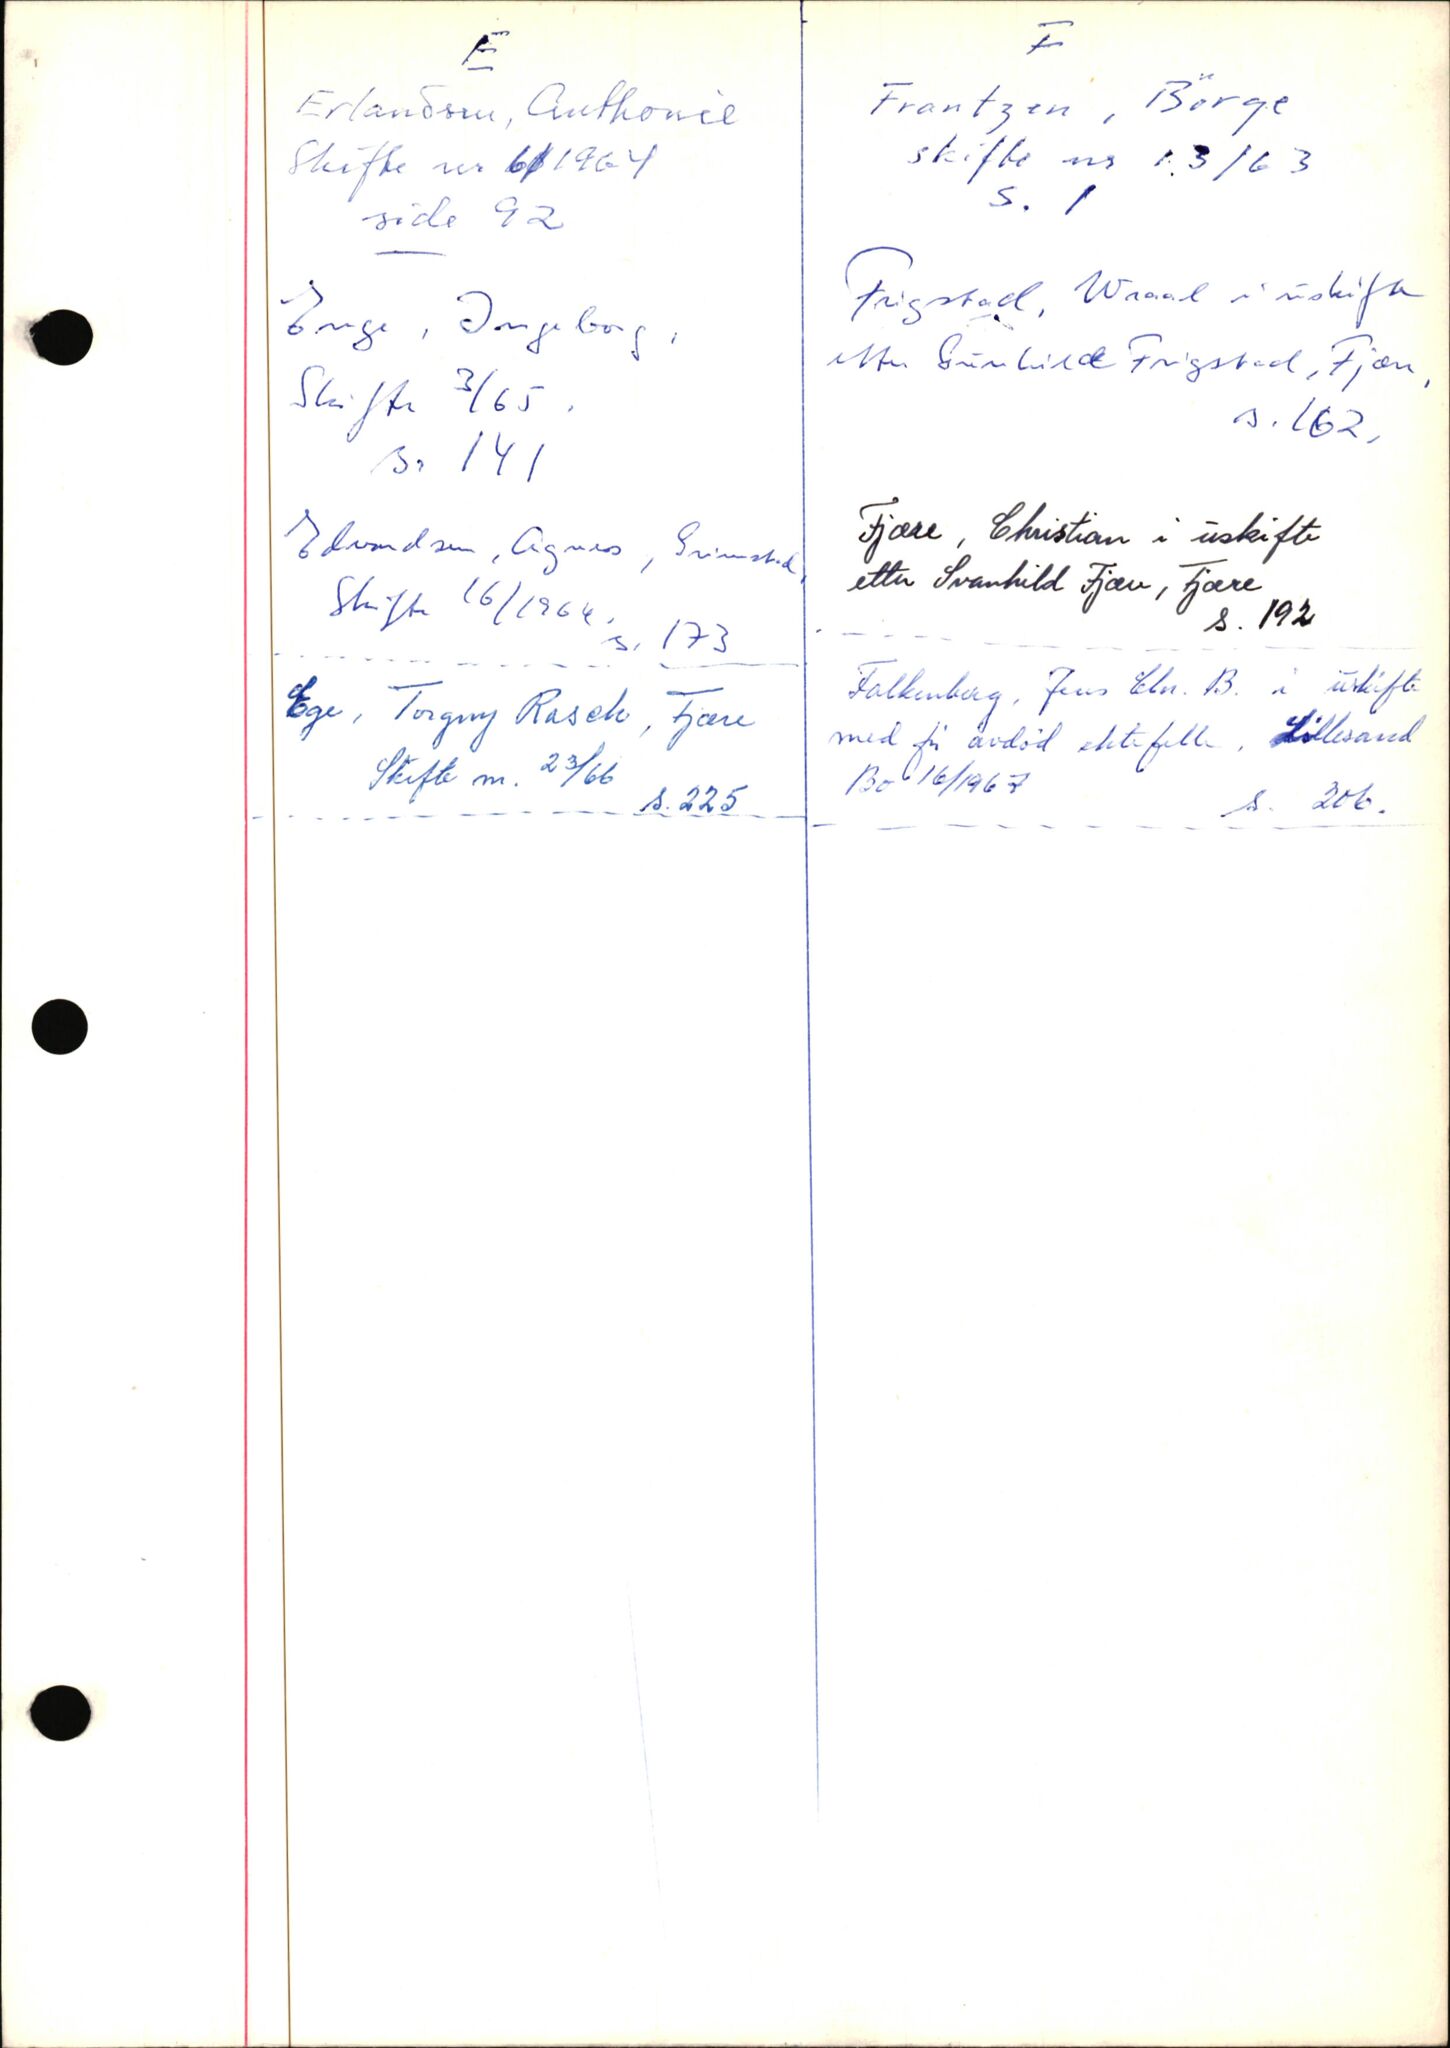 E
Erlandsen, Anthonie
Skifte nr 6/1964
side 92
Enge, Ingeborg,
Skifte 3/65.
s. 141
Edvardsen, Agnes, Grimstad,
Skifte 16/1964.
s. 173
Ege, Torgny Rasch, Fjære
Skifte nr. 23/66
s. 225
F
Frantzen, Börge
skifte nr 13/63
S. 1
Frigstad, Wraal i uskifte
etter Gunhild Frigstad, Fjære,
s. 162,
Fjære, Christian i uskifte
etter Svanhild Fjære, Fjære
s. 192
Falkenberg, Jens Chr. B. i uskifte
med før avdöd ektefelle, Lillesand
Bo 16/1967
s. 206.